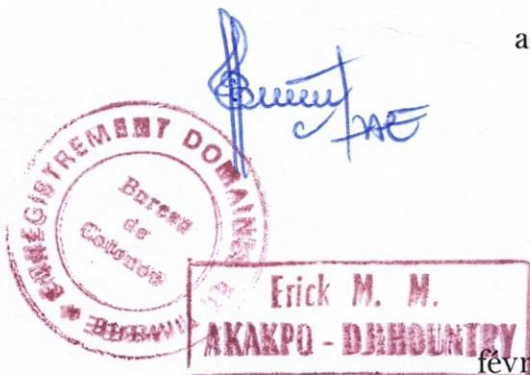 a
ENREGISTREMENT DOMAINES ET TIMBRE
Bureau
de
Cotonou
Erick M. M.
AKAKPO - DJIHOUNTRY
févr